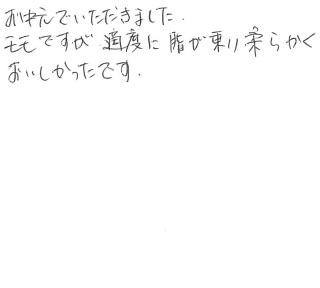 お中元でいただきました.
モモですが適度に脂が乗り柔らかく
おいしかったです.